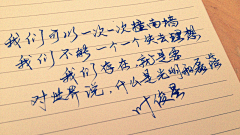 我们可以一次一次撞南墙
我们不能一个一个失去理想
我们存在 就是要
对世界说，什么是光明和磊落